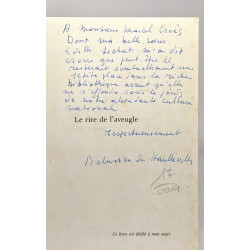 A Monsieur Marcel Croës
Dont ma belle soeur
Edith m'a dit
que peut être il
resterait éventuellement une
petite place dans sa riche
Bibliothèque avant qu'elle
ne s'effondre sous le poids
de notre abondante culture
nationale
Le rire de l'aveugle
Respectueusement
17
Ce livre est dédié à mon mari